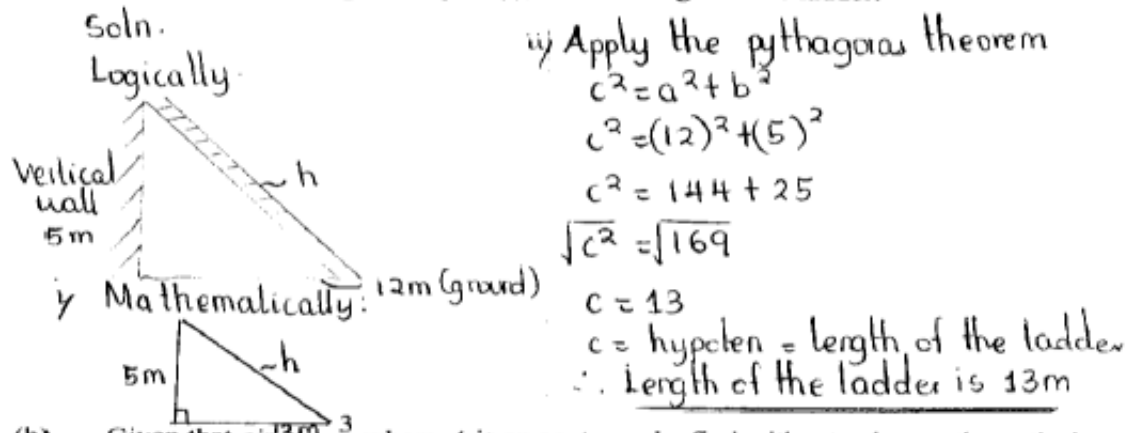 Soln.
Logically.
Vertical
wall
5m
h
12m (ground)
i) Mathematically:
5m
h
12m
3
ii) Apply the pythagoras theorem
c² = a² + b²
c² = (12)² + (5)²
c² = 144 + 25
√c² = √169
c = 13
c = hypoten = length of the ladder
∴ Length of the ladder is 13m
(b) Given that